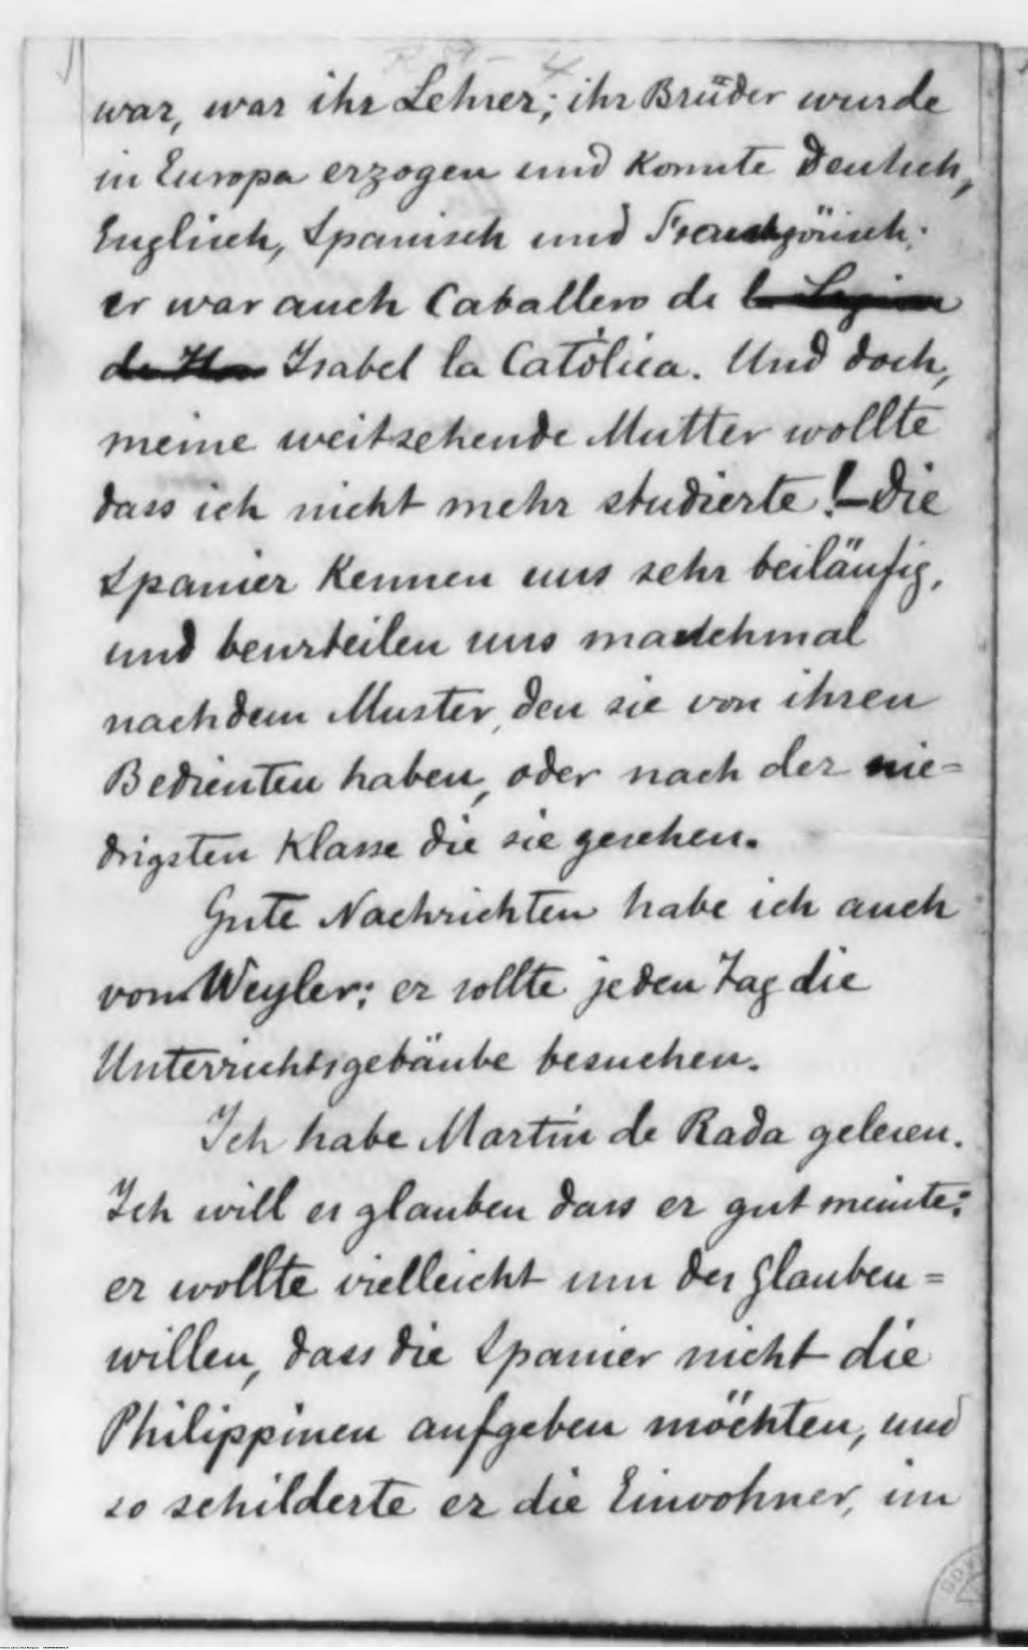 war, war ihr Lehrer; ihr Brüder wurde
in Europa erzogen und konnte Deutsch,
Englisch, Spanisch und Französisch;
er war auch Caballero de la Legion
de Hon Isabel la Católica. Und doch,
meine weitsehende Mutter wollte
dass ich nicht mehr studierte! – Die
Spanier kennen uns sehr beiläufig,
und beurteilen uns manchmal
nach dem Muster, den sie von ihren
Bedienten haben, oder nach der nie=
drigsten Klasse die sie gesehen.
Gute Nachrichten habe ich auch
von Weyler; er sollte jeden Tag die
Unterrichtsgebäube besuchen.
Ich habe Martín de Rada gelesen.
Ich will es glauben dass er gut meinte;
er wollte vielleicht um des Glauben=
willen, dass die Spanier nicht die
Philippinen aufgeben möchten, und
so schilderte er die Einwohner, im